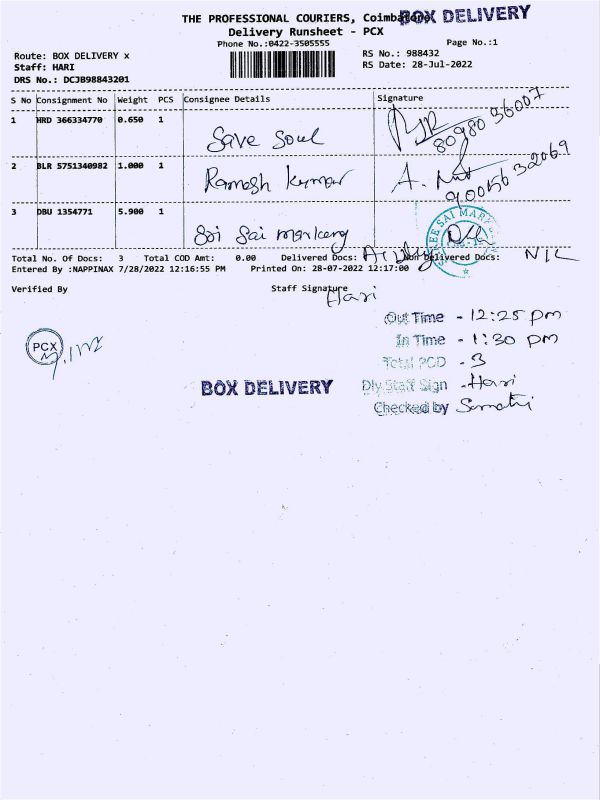 THE PROFESSIONAL COURIERS, Coimbatore BOX DELIVERY
Delivery Runsheet - PCX
Phone No.:0422-3505555 Page No.:1
Route: BOX DELIVERY x RS No.: 988432
Staff: HARI RS Date: 28-Jul-2022
DRS No.: DCJB98843201
S No Consignment No Weight PCS Consignee Details Signature
1 HRD 366334770 0.650 1
Save Soul 80980 36007
2 BLR 5751340982 1.000 1
Ramesh kumar A.
3 DBU 1354771 5.900 1
Sri Sai
Total No. Of Docs: 3 Total COD Amt: 0.00 Delivered Docs: Non Delivered Docs: NIL
Entered By :NAPPINAX 7/28/2022 12:16:55 PM Printed On: 28-07-2022 12:17:00
Verified By Staff Signature
Hari
Out Time - 12:25 pm
In Time - 1:30 pm
PCX
Total POD - 3
BOX DELIVERY Dly Staff Sign - Hari
Checked by